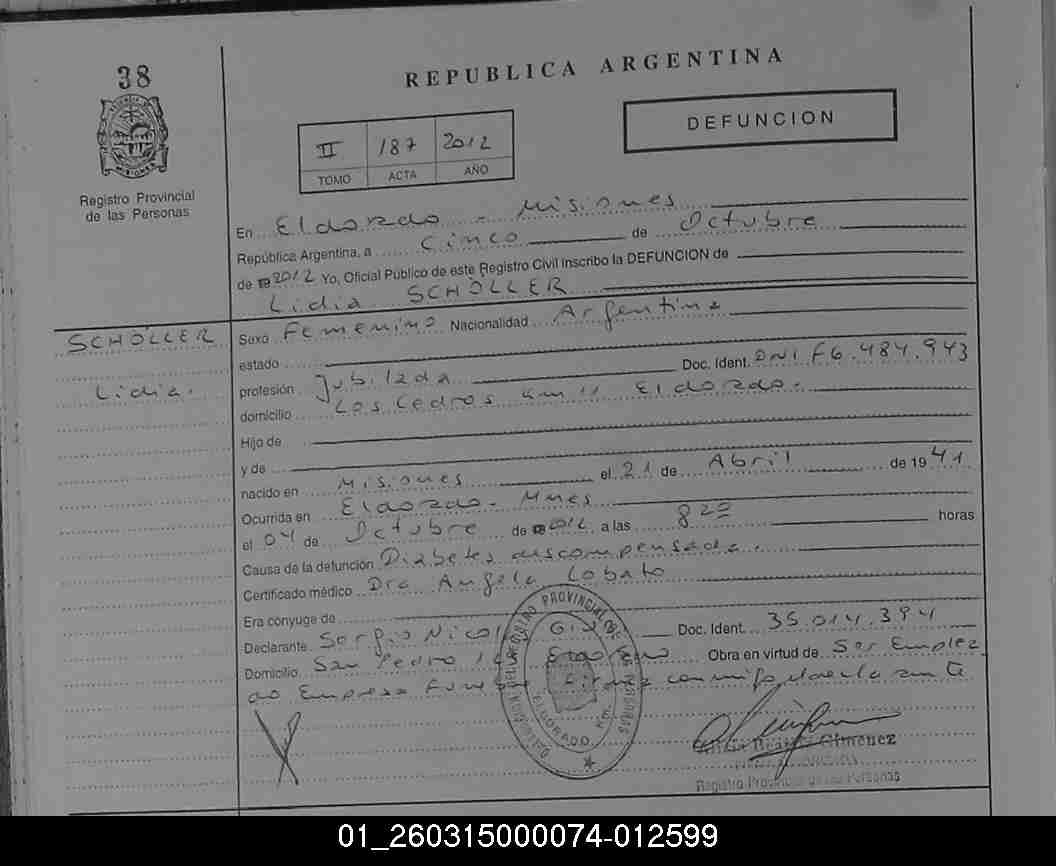 38
REPUBLICA ARGENTINA
DEFUNCION
II 187 2012
TOMO ACTA AÑO
Registro Provincial
de las Personas
En Eldorado - Misiones
República Argentina, a Cinco de Octubre
de 19 2012 Yo, Oficial Público de este Registro Civil inscribo la DEFUNCION de
Lidia SCHÖLLER
SCHÖLLER
Lidia.
Sexo Femenino Nacionalidad Argentina
estado
Doc. Ident. DNI F6.484.943
profesión Jubilada
domicilio Los Cedros Km 11 Eldorado.
Hijo de
y de
nacido en Misiones el 21 de Abril de 1941
Ocurrida en Eldorado - Mnes
el 04 de Octubre de 19 2012 a las 8 20 horas
Causa de la defunción Diabetes descompensada.
Certificado médico Dra Angela Lobato
Era conyuge de
Declarante Sergio Nicol Doc. Ident. 35.014.394
Domicilio San Pedro Obra en virtud de Ser Emplea
do Empresa Firma conmigo el declarante
DELEGACION DEL REGISTRO PROVINCIAL DE LAS PERSONAS
ELDORADO Km.
Beatriz Gimenez
Registro Provincial de las Personas
01_260315000074-012599